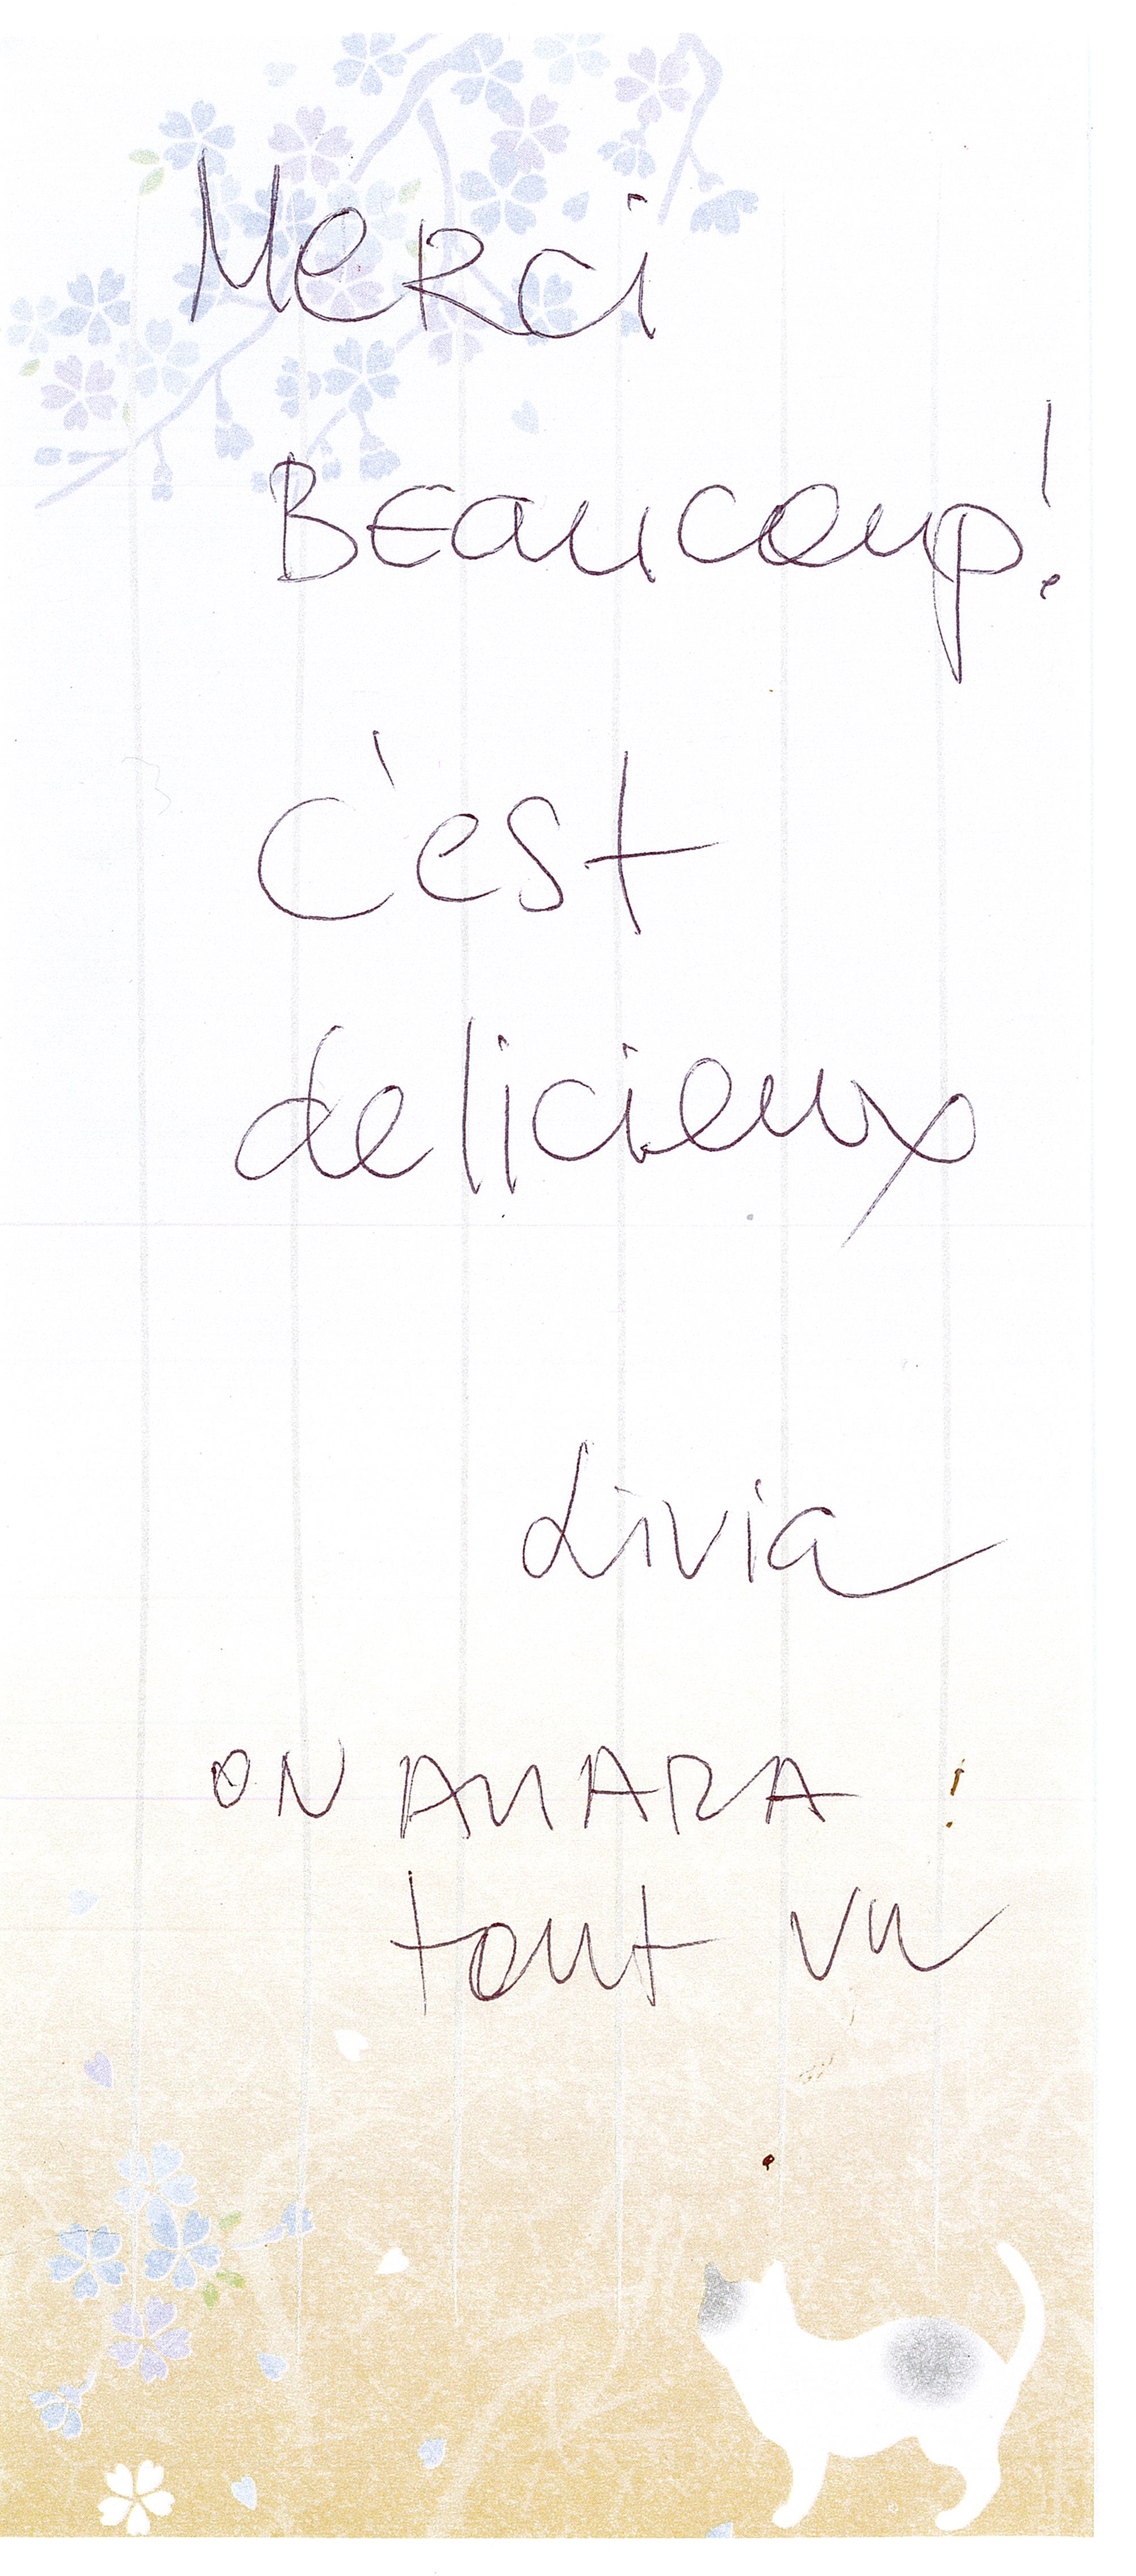 Merci
Beaucoup!
c'est
delicieux
Livia
ON AURA !
tout vu